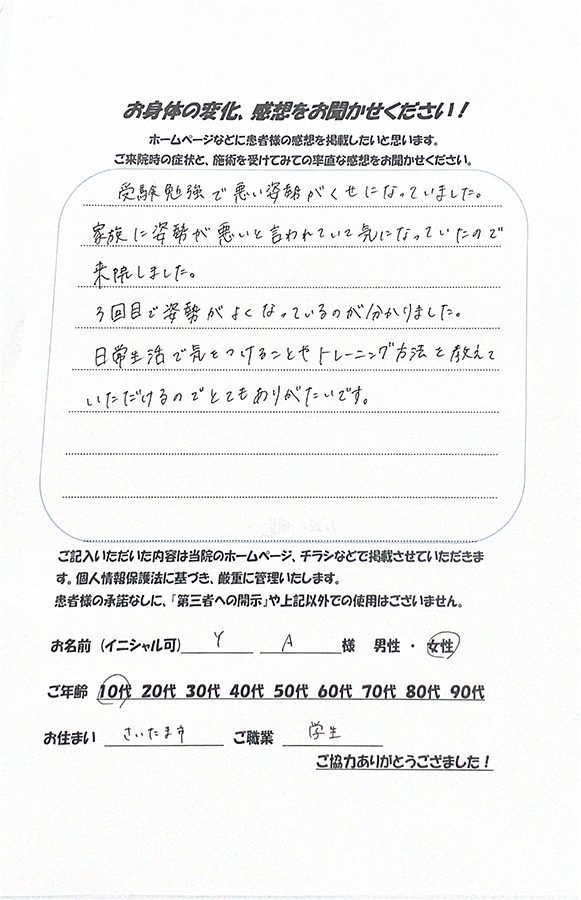 お身体の変化、感想をお聞かせください！
ホームページなどに患者様の感想を掲載したいと思います。
ご来院時の症状と、施術を受けてみての率直な感想をお聞かせください。
受験勉強で悪い姿勢がくせになっていました。
家族に姿勢が悪いと言われていて気になっていたので
来院しました。
3回目で姿勢がよくなっているのが分かりました。
日常生活で気をつけることやトレーニング方法を教えて
いただけるのでとてもありがたいです。
ご記入いただいた内容は当院のホームページ、チラシなどで掲載させていただきま
す。個人情報保護法に基づき、厳重に管理いたします。
患者様の承諾なしに、「第三者への開示」や上記以外での使用はございません。
お名前（イニシャル可） Y A 様 男性 ・ 女性
ご年齢 10代 20代 30代 40代 50代 60代 70代 80代 90代
お住まい さいたま市 ご職業 学生
ご協力ありがとうござました！